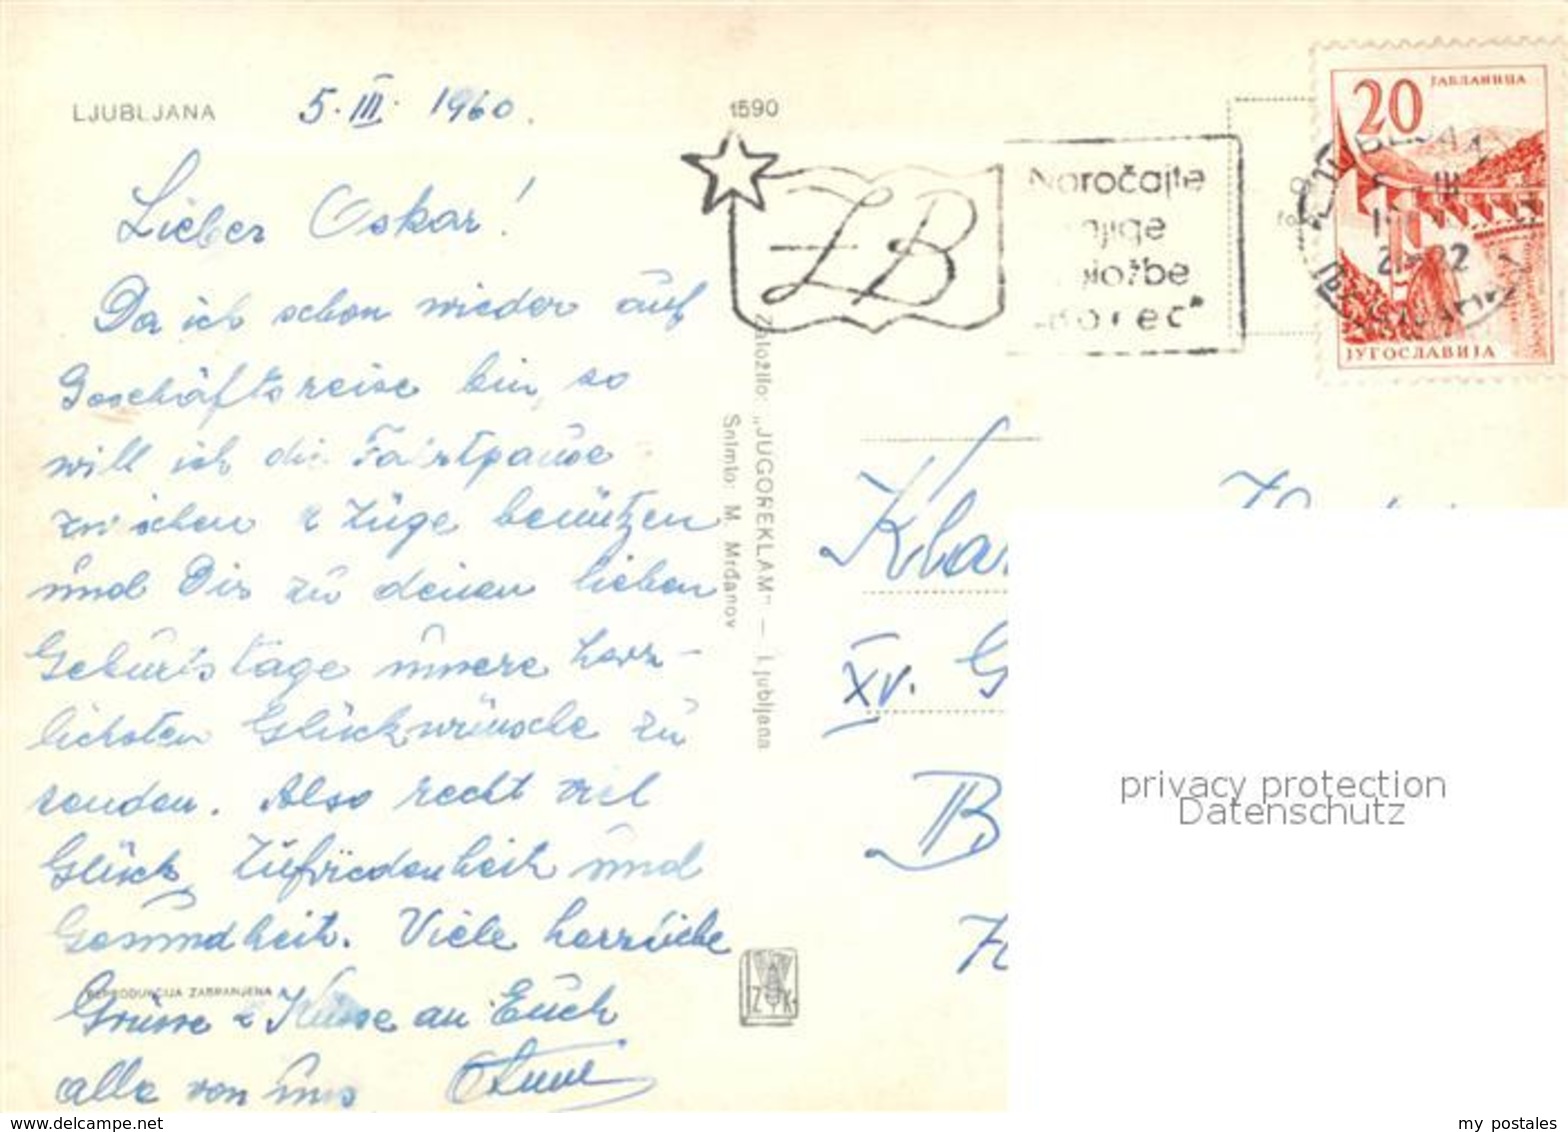 LJUBLJANA 5. III. 1960.
Lieber Oskar!
Da ich schon wieder auf
Geschäftsreise bin, so
will ich die Fahrtpause
zwischen 2 Züge benützen
und Dir zu deinen lieben
Geburtstage unsere herz-
lichsten Glückwünsche zu
senden. Also recht viel
Glück, Zufriedenheit und
Gesundheit. Viele herzliche
Grüsse & Küsse an Euch
alle von uns
REPRODUKCIJA ZABRANJENA
1590
Založilo: „JUGOREKLAM" — Ljubljana
Snimio: M. Mrđanov
ZB
Naročajte
knjige
založbe
„Borec"
20
ЈАБЛАНИЦА
ЈУГОСЛАВИЈА
XV. G
B
privacy protection
Datenschutz
Z K
www.delcampe.net
my_postales